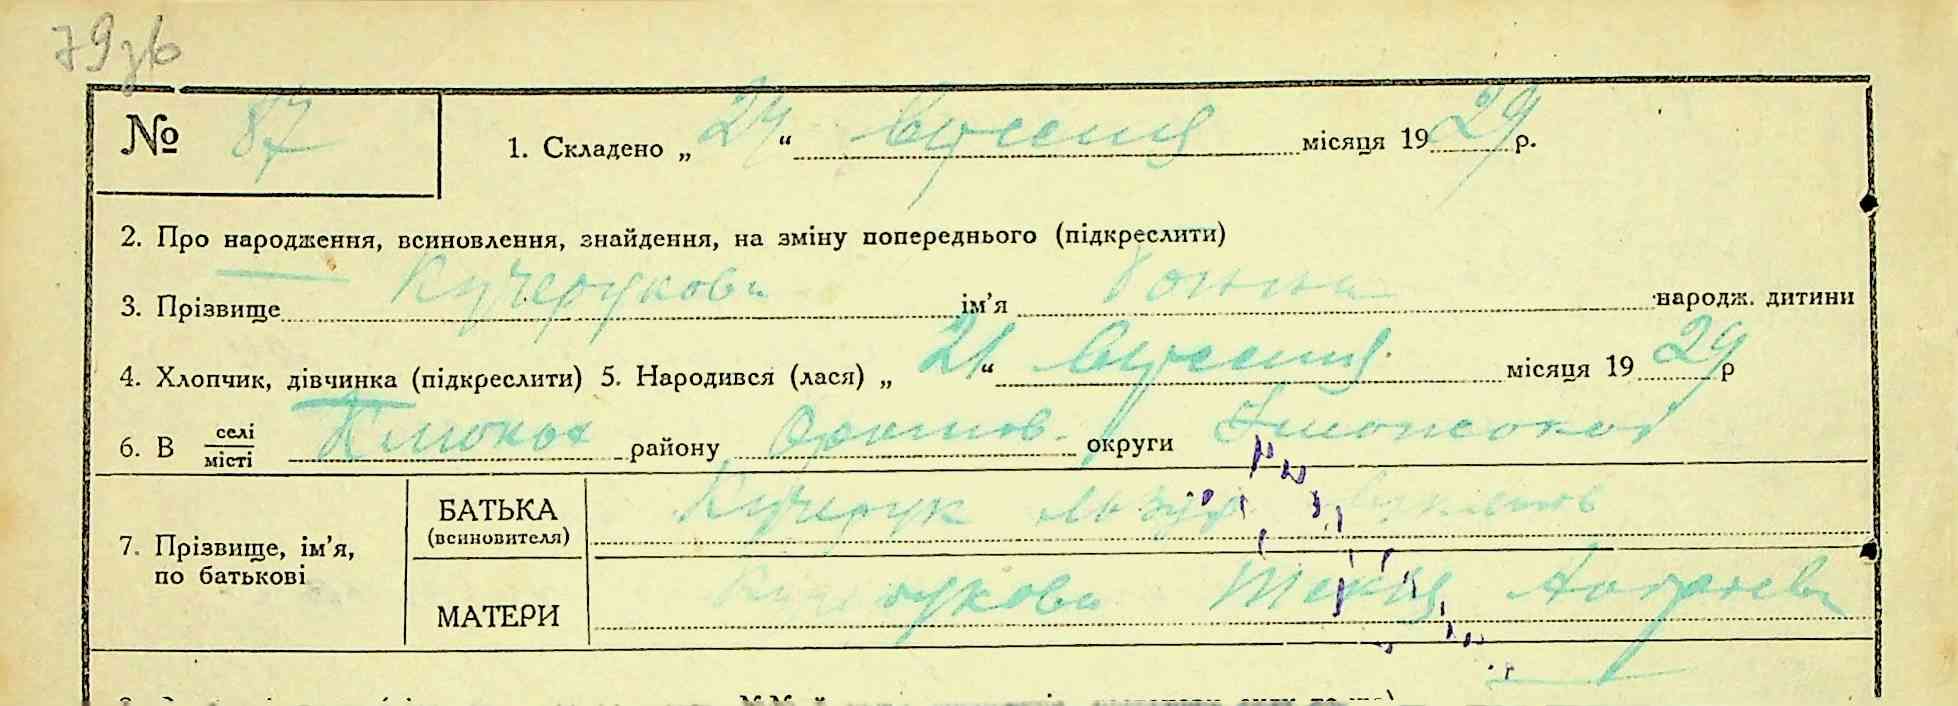 79 зв
№ 87 1. Складено „ 24 “ вересня місяця 1929 р.
2. Про народження, всиновлення, знайдення, на зміну попереднього (підкреслити)
3. Прізвище Кучерукова ім’я Ганна народж. дитини
4. Хлопчик, дівчинка (підкреслити) 5. Народився (лася) „ 21 “ вересня місяця 1929 р
6. В селі місті району Оратов. округи Уманської
7. Прізвище, ім’я, по батькові
БАТЬКА (всиновителя) Кучерук
МАТЕРИ Кучерукова Текля Андреева